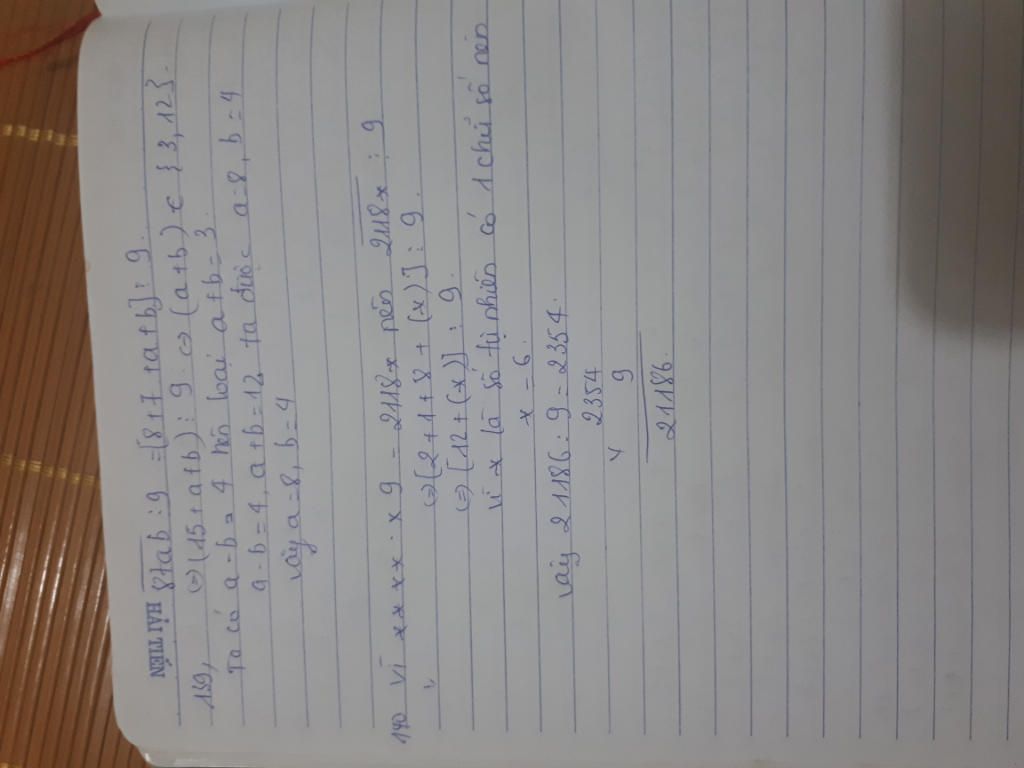 HẢI TIẾN
139, 87ab ⋮ 9 = [8+7+a+b] ⋮ 9.
⇔ (15+a+b) ⋮ 9 ⇔ (a+b) ∈ {3,12}.
Ta có a-b = 4 nên loại a+b = 3.
a-b=4, a+b=12 ta được a=8, b=4
Vậy a=8, b=4
140 Vì x x x x . x 9 = 2118x nên 2118x ⋮ 9
⇔ [2+1+1+8+(x)] ⋮ 9.
⇔ [12+(x)] ⋮ 9.
Vì x là số tự nhiên có 1 chữ số nên
x = 6.
Vậy 21186 : 9 = 2354.
2354
x 9
21186.